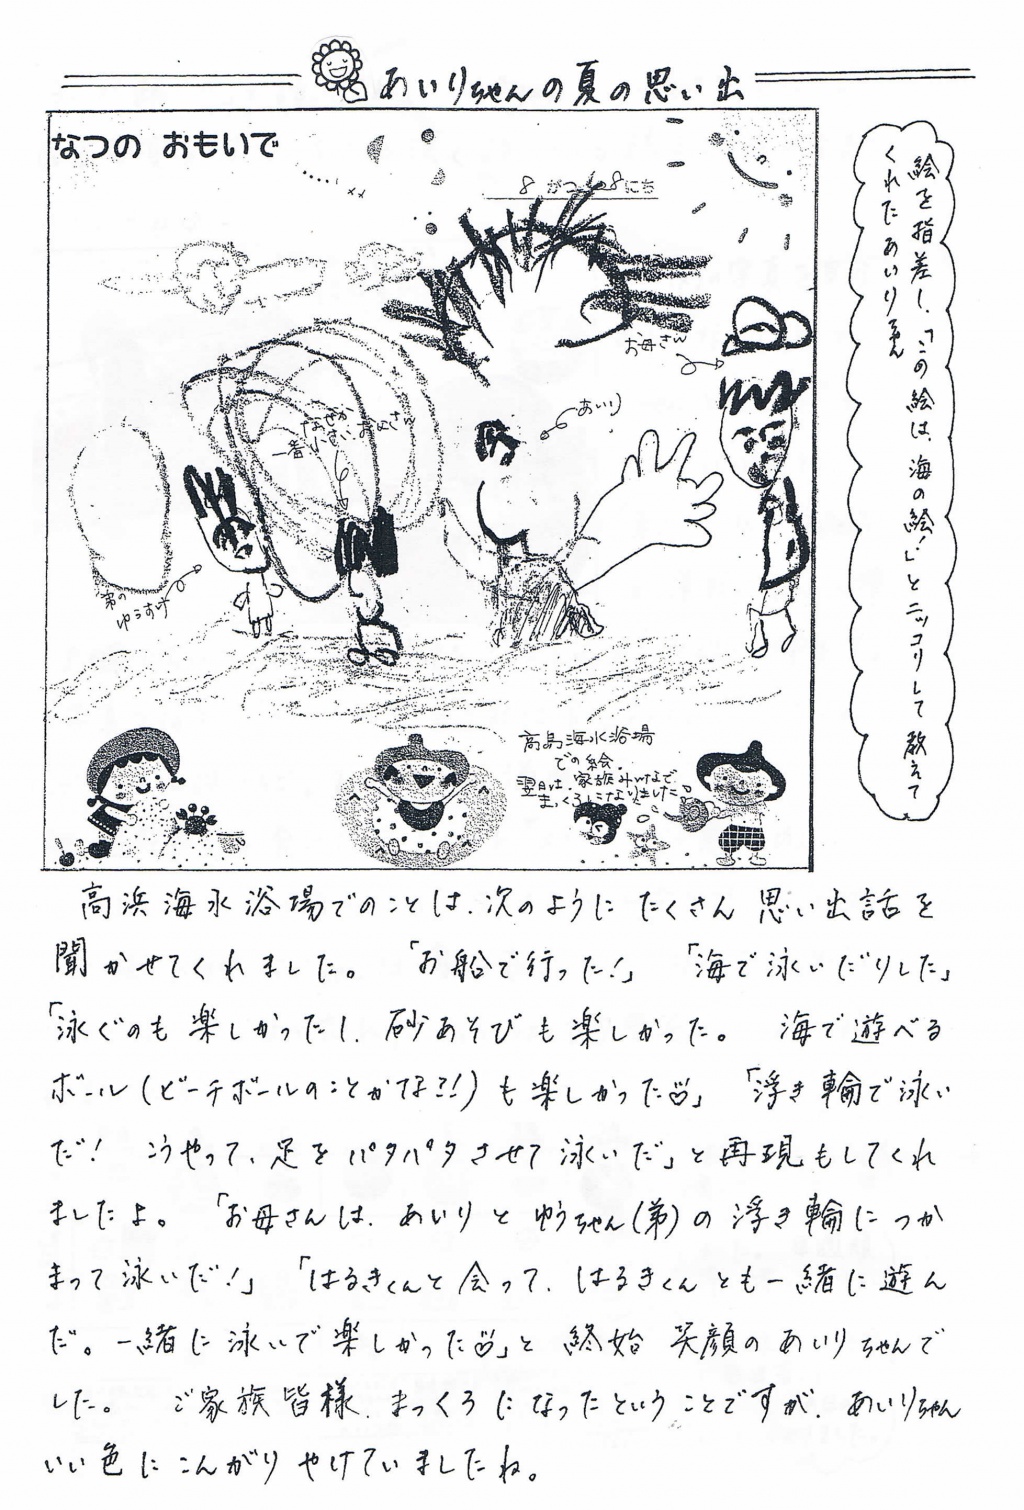 あいりちゃんの夏の思い出
なつの おもいで
8がつ8にち
お母さん
あいり
なぜか
一番小さいお父さん
弟の
ゆうすけ
高島海水浴場
での絵。
翌日は、家族みんなで
まっくろになりました
絵を指差し、「この絵は、海の絵!」とニッコリして教えて
くれたあいりちゃん
高浜海水浴場でのことは、次のように たくさん 思い出話を
聞かせてくれました。 「お船で行った!」 「海で泳いだりした」
「泳ぐのも楽しかったし、砂あそびも楽しかった。 海で遊べる
ボール(ビーチボールのことかな?!)も楽しかった」 「浮き輪で泳い
だ! こうやって、足をパタパタさせて泳いだ」と再現もしてくれ
ましたよ。 「お母さんは、あいりとゆうちゃん(弟)の浮き輪につか
まって泳いだ!」 「はるきくんと会って、はるきくんとも一緒に遊ん
だ。一緒に泳いで楽しかった」と 終始 笑顔のあいりちゃんで
した。 ご家族皆様、まっくろになったということですが、あいりちゃん
いい色にこんがりやけていましたね。